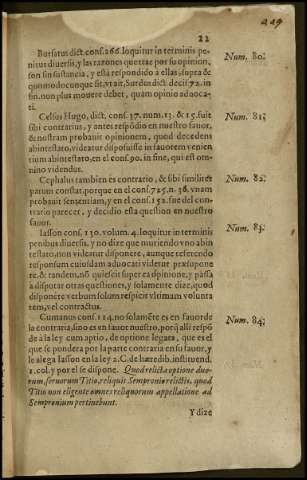 22
229
Bursatus dict. cons. 266. loquitur in terminis pe-
nitus diuersis, y las razones que trae por su opinion,
son sin sustancia, y està respondido a ellas supra &
quomodocunque sit, vt ait, Surdus dict. decis. 72. in
fin. non plus mouere debet, quam opinio aduoca-
ti.
Num. 80.
Celsus Hugo, dict. cons. 37. num. 13. & 15. fuit
sibi contrarius, y antes respõdio en nuestro fauor,
& nostram probauit opinionem, quod decedens
abintestato, videatur disposuisse in fauorem venien
tium abintestato, en el cons. 90. in fine, qui est om-
nino videndus.
Num. 81.
Cephalus tambien es contrario, & sibi similiter
parum constat, porque en el cons. 725. n. 36. vnam
probauit sententiam, y en el cons. 152. fue del con-
trario parecer, y decidio esta question en nuestro
fauor.
Num. 82.
Iasson cons. 130. volum. 4. loquitur in terminis
penitus diuersis, y no dize que muriendo vno abin
testato, non videatur disponere, aunque refiriendo
responsum cuiusdam aduocati videtur præsupone
re, & tandem, nõ quiescit super ea opinione, y passa
à disputar otras questiones, y solamente dize, quod
disponére verbum solum respicit vltimam volunta
tem, vel contractus.
Num. 83.
Cumanus cons. 114. no solamẽte es en fauor de
la contraria, sino es en fauor nuestro, porq̃ alli respõ
de à la ley cum aptio, de optione legata, que es el
que se pondera por la parte contraria en su fauor, y
le alega Iasson en la ley 2. C. de hæredib. instituend.
2. col. y por el se dispone. Quod relicta optione duo-
rum, seruorum Titio, reliquis Sempronio relictis, quod
Titio non eligente omnes reliquorum appellatione ad
Sempronium pertinebunt.
Num. 84.
Y dize